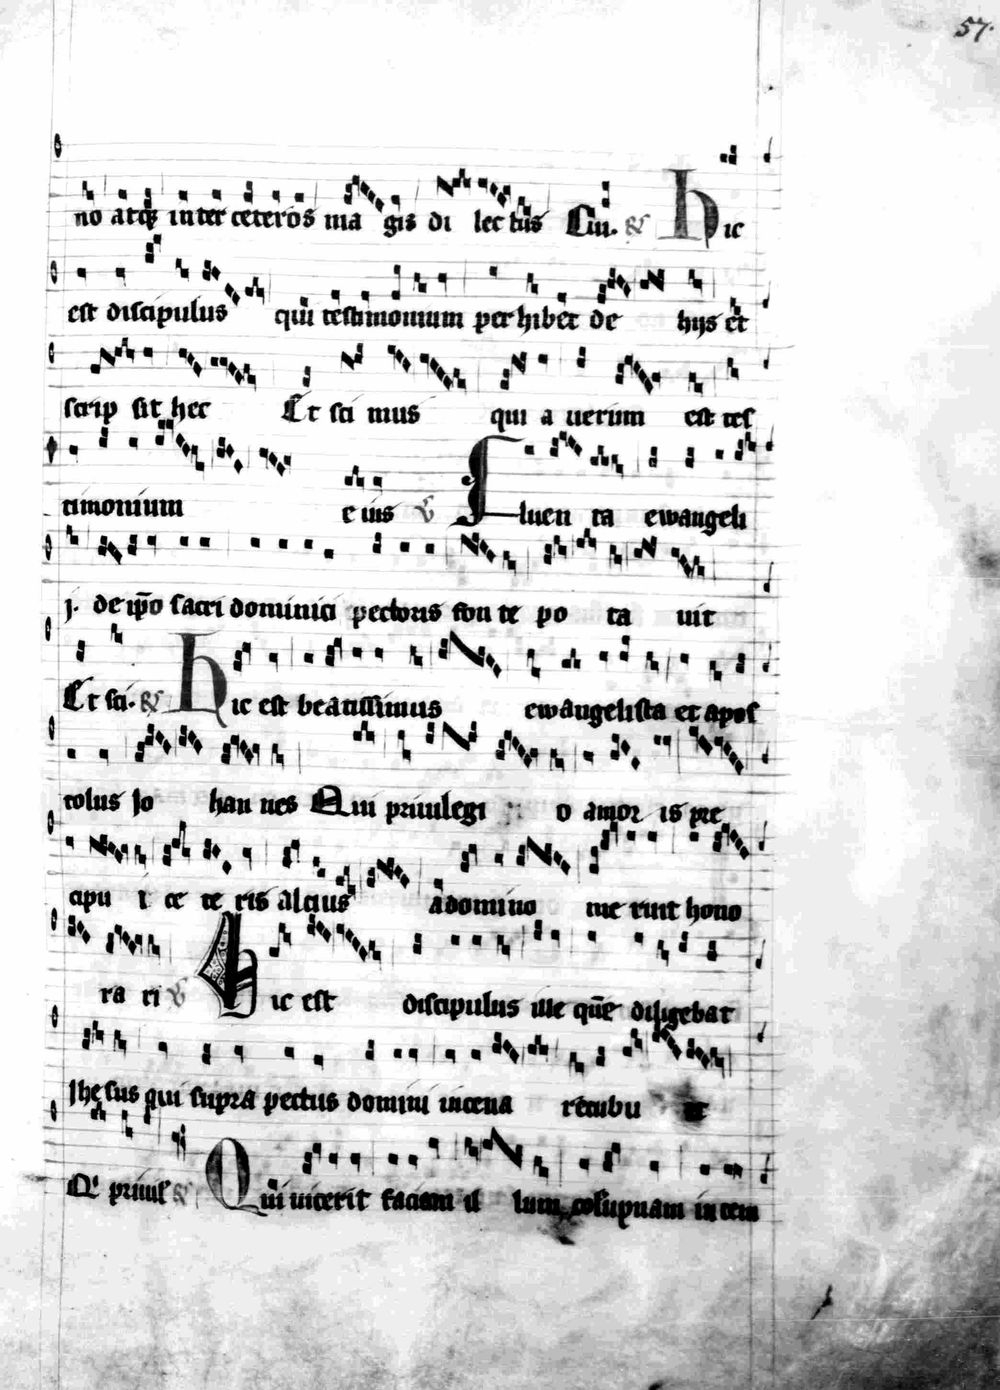 57.
no atq; inter ceteros ma gis di lec tus Cui. & hic
est discipulus qui testimonium perhibet de hijs et
scrip sit hec Et sci mus qui a uerum est tes
timonium e ius V Fluen ta ewangeli
j. de ip̄o sacri dominici pectoris fon te po ta uit
Et sci. & Hic est beatissimus ewangelista et apos
tolus Jo han nes Qui priuilegi o amor is pre
cipu i ce te ris alcius adomino me ruit hono
ra ri V Hic est discipulus ille quē diligebat
Jhesus qui supra pectus domini incena recubu it
Qi priuil & Qui uicerit faciam il lum colūpnam in tem